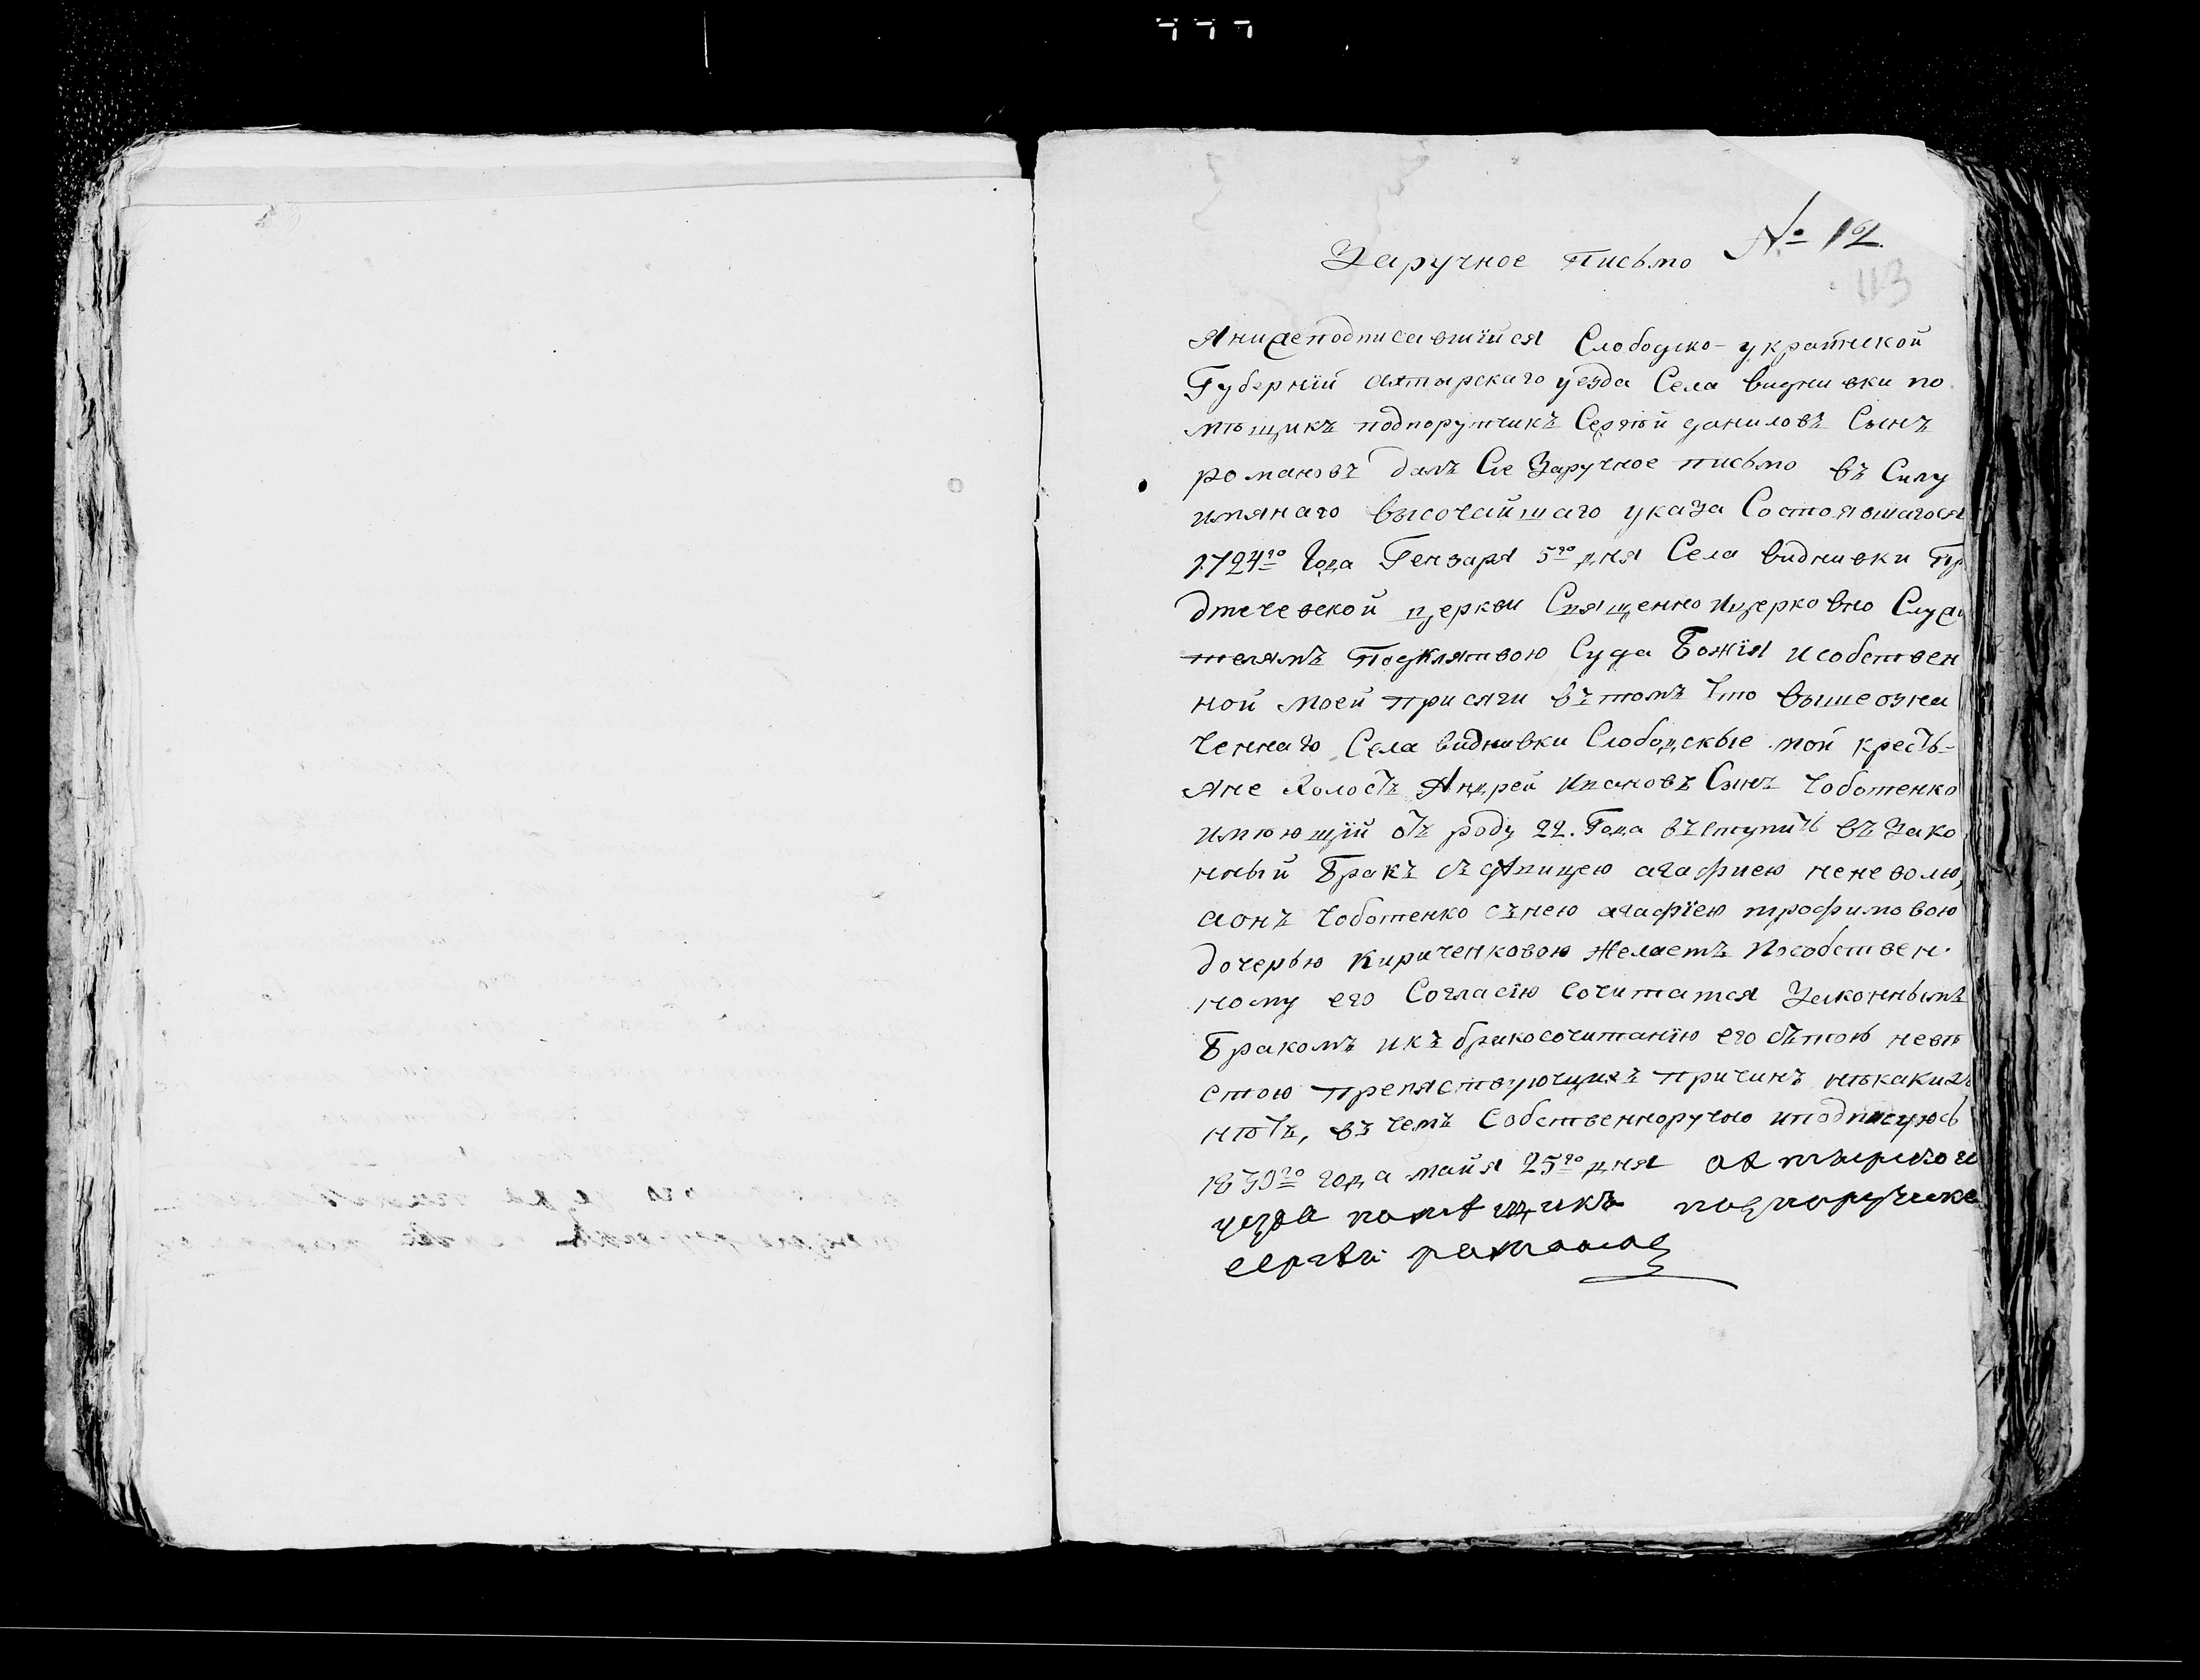 № 12.
Заручное письмо
113
Я нижеподписавшийся Слободско-украинской
Губерніи ахтырскаго уезда Села видневки по
мѣщикъ подпоручикъ Сергѣй даниловъ Сынъ
романовъ далъ Сіе Заручное письмо въ Силу
имянаго высочайшаго указа Состоявшагося
1724го Года Генваря 5го дня Села видневки пр
дтечевской церкви Священно ицерковно Служи
телямъ Подклятвою Суда Божія исобствен
ной моей присяги втомъ Что вышеозна
Ченнаго Села видневки Слободскые мои кресть-
яне Холостъ Андрей Ивановъ Сынъ Чоботенко
имѣющій отъ роду 22. Года въступить въ Зако
нный Бракъ съ девицею агафиею неневолю,
аонъ Чоботенко снею агафіею трофимовою
дочерью Кириченковою желаетъ Пособствен-
ному его Согласію Сочитатся Законнымъ
Бракомъ икъ бракосочитанію его стою невѣ
стою препяствующихъ причинъ нѣкакихъ
нѣтъ, въ Чемъ Собственноручно иподписуюсь
1830го года майя 25го дня ахтырскаго
уезда помѣщикъ подпоручикъ
сергѣй романовъ